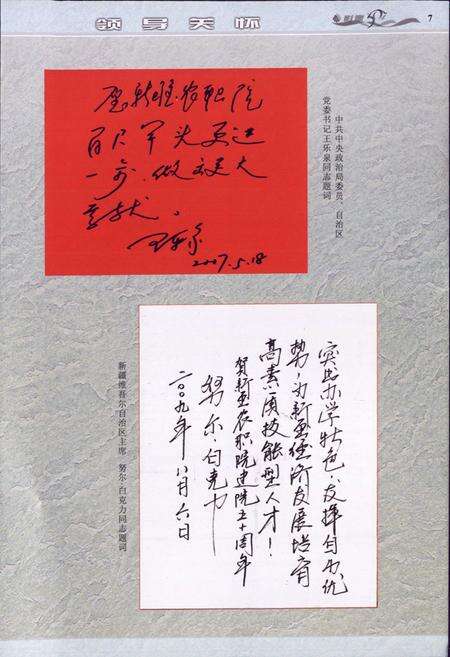 领导关怀
7
愿新疆农职院
百尺竿头更进
一步,做更大
贡献。
王乐泉
2007.5.18
中共中央政治局委员、自治区
党委书记王乐泉同志题词
突出办学特色,发挥自身优
势,为新疆经济发展培育
高素质技能型人才!
贺新疆农职院建院五十周年
努尔·白克力
二〇〇九年八月六日
新疆维吾尔自治区主席 努尔·白克力同志题词